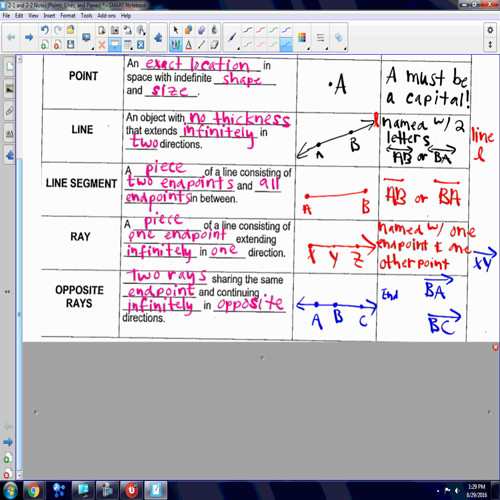 2-1 and 2-2 Notes (Points, Lines, and Planes) * - SMART Notebook
File Edit Insert Format View Tools Add-ons Help
POINT
An exact location in
space with indefinite shape
and size.
A
A must be
a capital!
LINE
An object with no thickness
that extends infinitely in
two directions.
A B l
named w/ 2
letters
AB or BA
line
l
LINE SEGMENT
A piece of a line consisting of
two endpoints and all
endpoints in between.
A B
AB or BA
RAY
A piece of a line consisting of
one endpoint extending
infinitely in one direction.
X Y Z
named w/ one
endpoint & one
other point
XY
OPPOSITE
RAYS
two rays sharing the same
endpoint and continuing
infinitely in opposite
directions.
A B C
End
BA
BC
1:29 PM
8/29/2016